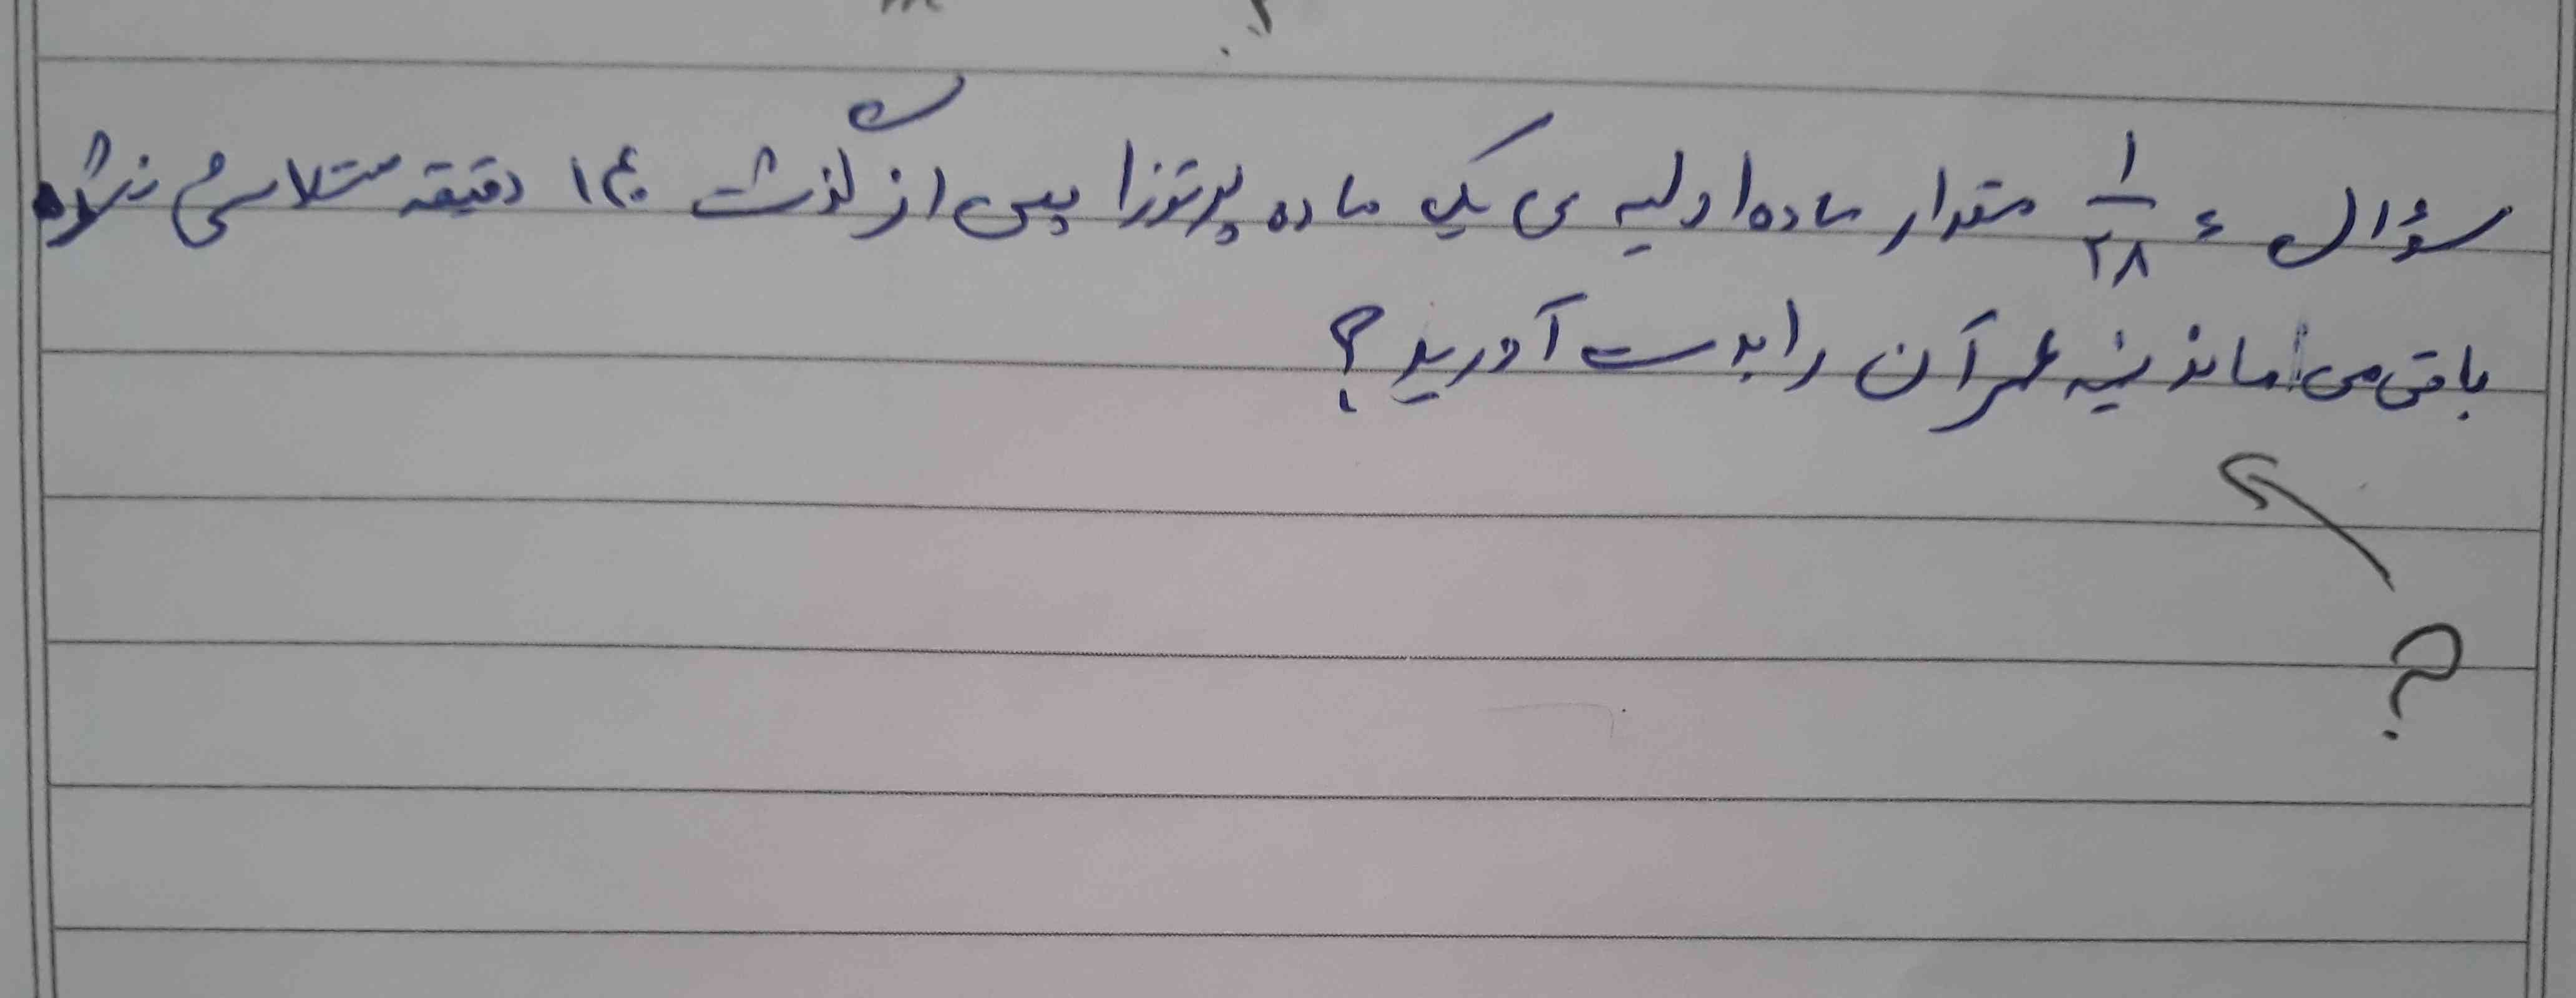 سؤال ء ۱/۲۸ مقدار ماده اولیه ی یک ماده پرتوزا پس از گذشت ۱۴۰ دقیقه متلاشی نشده
باقی می ماند نیمه عمر آن را بدست آورید؟
؟